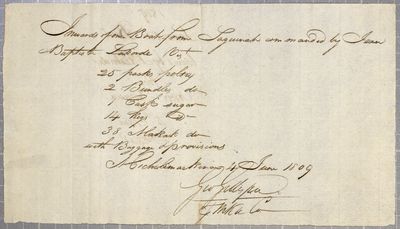 Inwards of one Boat from Saguinah commanded by Jean
Baptist Laborde Viz.t
25 packs peltry
2 Bundles do
1 Cask sugar
14 Kegs do
38 Makak do
with Baggage & provisions
Michilimackinac 4 June 1809
Geo Gillespie